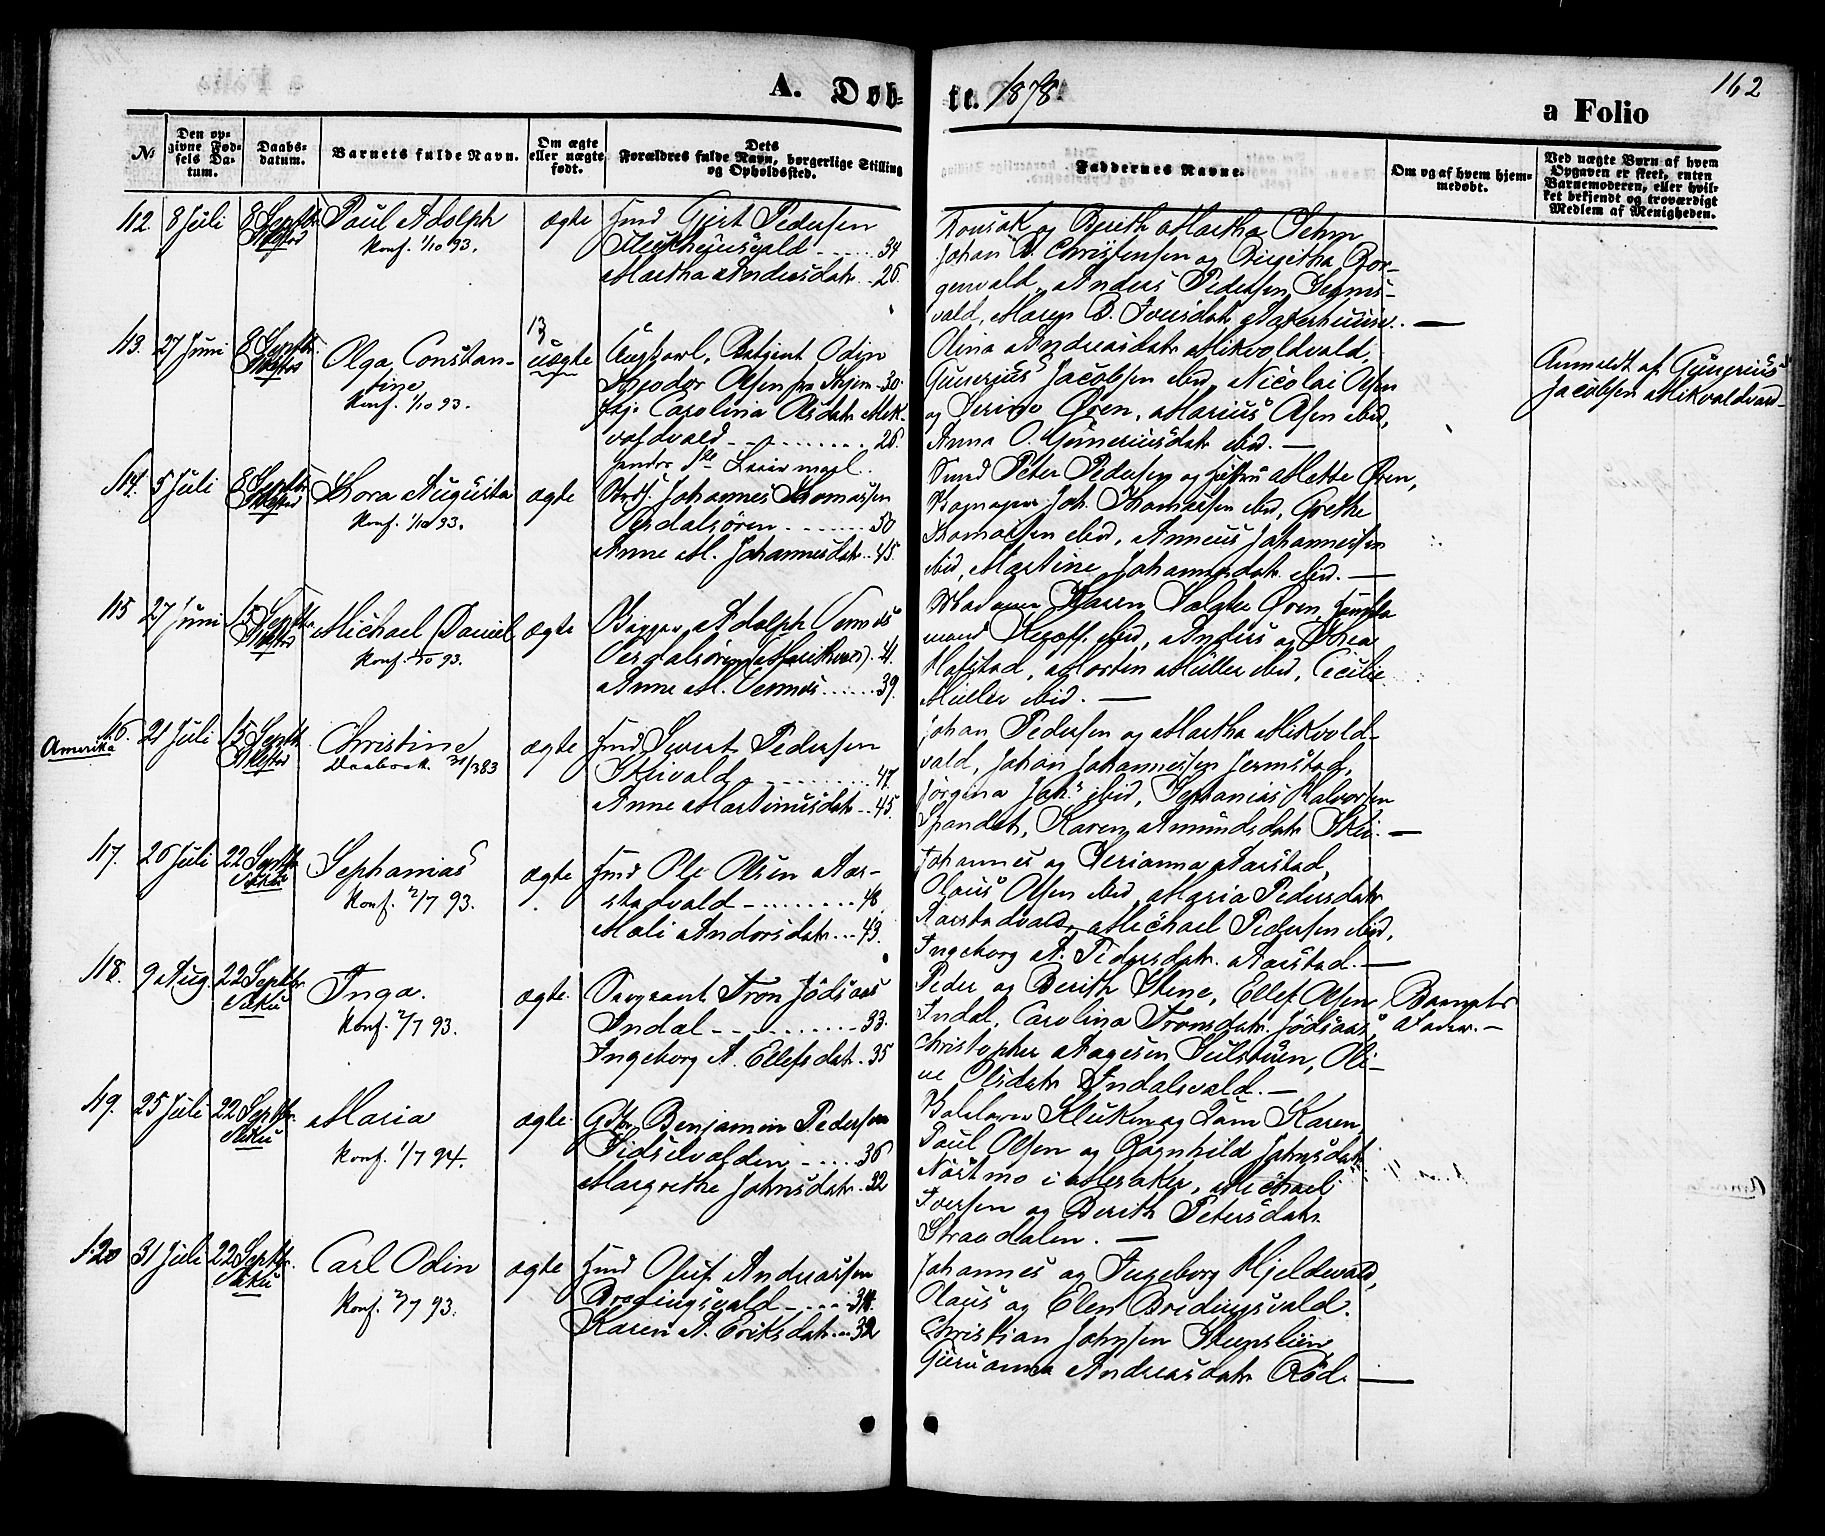 A. Døb-
te. 1878.
162
a Folio
No
Den op-
givne Fød-
sels Da-
tum.
Daabs-
datum.
Barnets fulde Navn.
Om ægte
eller uægte
født.
Dets
Forældres fulde Navn, borgerlige Stilling
og Opholdssted.
Faddernes Navne.
Om og af hvem hjem-
medøbt.
Ved uægte Børn af hvem
Opgaven er skeet, enten
Barnemoderen, eller hvil-
ket bekjendt og troværdigt
Medlem af Menigheden.
112. 8 Juli 8 Septbr.
Paul Adolph
Konf. 1/10 93.
ægte
Hmd Gjert Pedersen
34
Martha Andersdatr. 26.
og Berith Martha
Johan B. Christensen og Birgitha Bor-
genvald, Anders Pedersen
vald, Maren B. Iversdatr
113. 27 Juni 8 Septbr.
Olga Constan-
tine
Konf. 1/10 93.
13
uægte
Ungkarl, Odin
Theodor Olsen fra 30.
Pige Carolina Olsdatr. Mik-
voldvald 26.
Andreasdatr. Mikvoldvald,
Gunerius Jacobsen ibid, Nicolai Olsen
og Serine Ören, Marius Olsen ibid,
Anna O. Guneriusdatr. ibid.
Anmeldt af Gunerius
Jacobsen Mikvoldvald
114. 5 Juli 8 Septbr.
Thora Augusta
Konf. 1/10 93.
ægte
Johannes Thomassen
Verdalsören 50
Anne M. Johannesdatr. 45.
Peter Pedersen og Hustru Mette Ören,
Joh. Thomassen ibid, Grethe
Thomassen ibid, Anneus Johannessen
ibid, Martine Johannesdatr. ibid.
115 27 Juni 15 Septbr.
Michael Daniel
Konf. 1/10 93.
ægte
Adolph
Verdalsören 41.
Anne M. 39.
Madame Karen Ören,
mand ibid, Anders og Thea
Hofstad, Morten Müller ibid, Cecilie
Müller ibid.
116. 21 Juli 15 Septbr.
Amerika
Christine
Daabsatt. 31/3 83
ægte
Hmd Sivert Pedersen
Skeivald 47.
Anne Martinusdatr. 45.
Johan Pedersen og Martha Mikvold-
vald, Johan Johannessen Jermstad,
Jörgine Joh. ibid, Sephanias Halvorsen
Spandet, Karen Amundsdatr. Skei.
117. 26 Juli 22 Septbr.
Sephanias
Konf. 2/7 93.
ægte
Hmd Ole Olsen Aar-
stadvald 48.
Mali Andorsdatr. 43.
Johannes og Serianna Aarstad,
Olaus Olsen ibid, Maria Pedersdatr.
Aarstadvald, Michael Pedersen ibid,
Ingeborg A. Pedersdatr. Aarstad.
118. 9 Aug. 22 Septbr.
Inga.
Konf. 2/7 93.
ægte.
Sergeant Tron Jödsaas
Indal 33.
Ingeborg A. Ellefsdatr. 35
Peder og Berith Stene, Ellef Olsen
Indal, Carolina Tronsdatr. Jödsaas,
Christopher Aagesen Sulstuen, Oli-
ne Olsdatr. Indalsvald.
Barnets
Fader.
119. 25 Juli 22 Septbr.
Maria
Konf. 1/7 94.
ægte.
Benjamin Pedersen
36
Margrethe Johnsdatr. 32
Kirkesanger Kluken og Dam Karen,
Paul Olsen og Ragnhild Johnsdatr.
Nästmo i Meraker, Michael
Iversen og Berith Petersdatr.
Straadalen.
120 31 Juli 22 Septbr.
Carl Odin
Konf. 2/7 93.
ægte
Hmd Oluf Andreassen
Bredingsvald 34.
Karen A. Eriksdatr. 32
Johannes og Ingeborg Hjeldevald,
Olaus og Elen Bredingsvald.
Christian Johnsen
Andreasdatr. Röd.